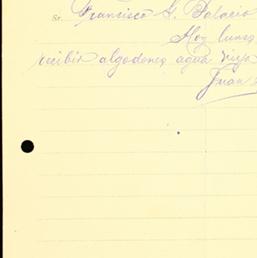 Sr. Francisco G. Palacio
Hoy lunes
recibir algodones agua vieja
Juan